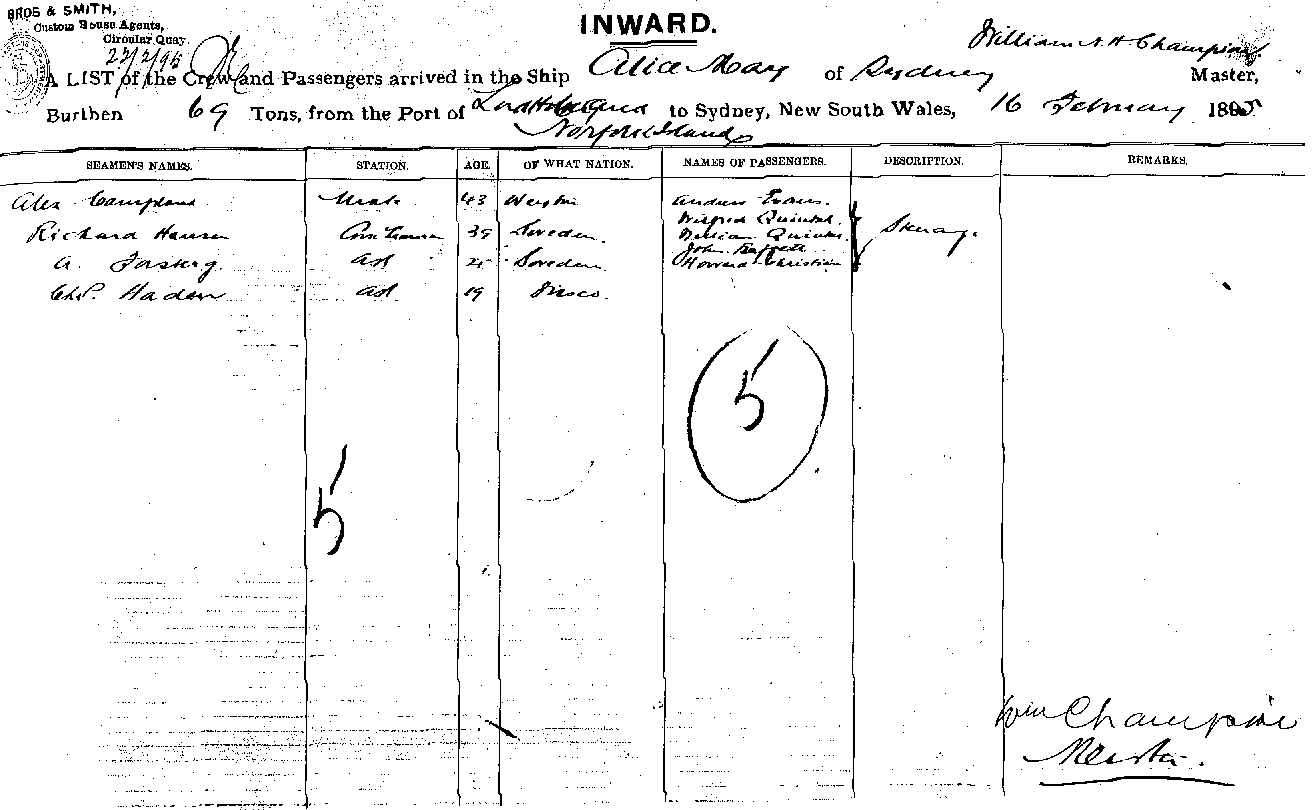 BROS & SMITH,
Custom House Agents,
Circular Quay.
22/2/95
INWARD.
William N. H. Champion
A LIST of the Crew and Passengers arrived in the Ship Alice May of Sydney Master,
Burthen 69 Tons, from the Port of to Sydney, New South Wales, 16 February 1895
Norfolk Island
SEAMEN'S NAMES. STATION. AGE. OF WHAT NATION. NAMES OF PASSENGERS. DESCRIPTION. REMARKS.
Alex Mate 43 Andrew Evans.
Wilfred Quintal
Richard Hansen 39 Sweden. William Quintal
John Buffett
A. Forsberg AB Sweden Howard Christian
Steerage.
AB 19
5
5
Wm Champion
Master.